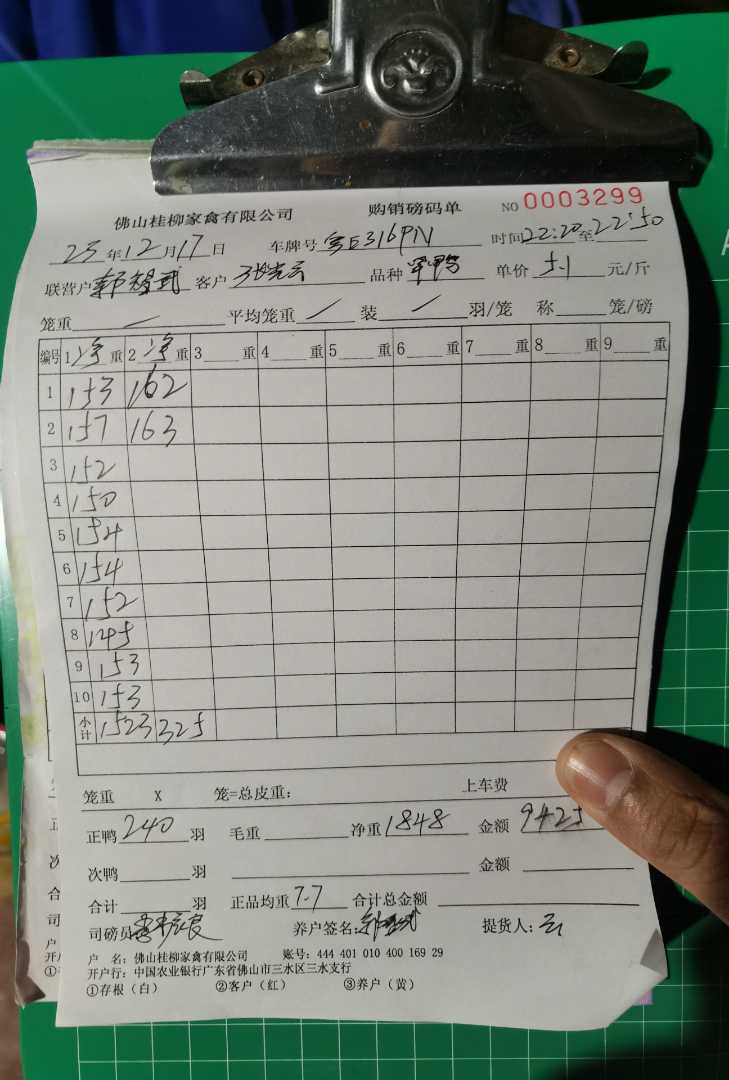 佛山桂柳家禽有限公司 购销磅码单 NO 0003299
23年12月17日 车牌号 粤E316PN 时间22:20至22:50
联营户 客户 品种 单价 5.1 元/斤
笼重 平均笼重 装 羽/笼 称 笼/磅
编号 1净重 2净重 3 重 4 重 5 重 6 重 7 重 8 重 9 重
1 153 162
2 157 163
3 152
4 150
5 154
6 154
7 152
8 145
9 153
10 153
小计 1523 325
笼重 X 笼=总皮重： 上车费
正鸭 240 羽 毛重 净重 1848 金额 9425
次鸭 羽 金额
合计 羽 正品均重 7.7 合计总金额
司磅员 养户签名： 提货人：
户 名：佛山桂柳家禽有限公司 账号：444 401 010 400 169 29
开户行：中国农业银行广东省佛山市三水区三水支行
①存根（白） ②客户（红） ③养户（黄）